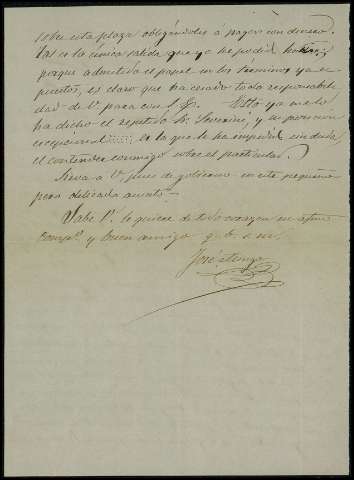 sobre esta plaza obligándoles a pagar con descuento.
Tal es la única salida que yo he podido hallar,
porque admitido el papel en los términos ya ex-
puestos, es claro que ha cesado toda responsabili-
dad de V. para con S. S. Esto ya me lo
ha dicho el repetido Sr. y su posicion
excepcional es la que le ha impedido sin duda,
el contender conmigo sobre el particular.
Sirva a V. pues de gobierno en este pequeño
pero delicado asunto.
Sabe V. le quiere de todo corazon su afmo.
Compº. y buen amigo q. b. s. m.
José